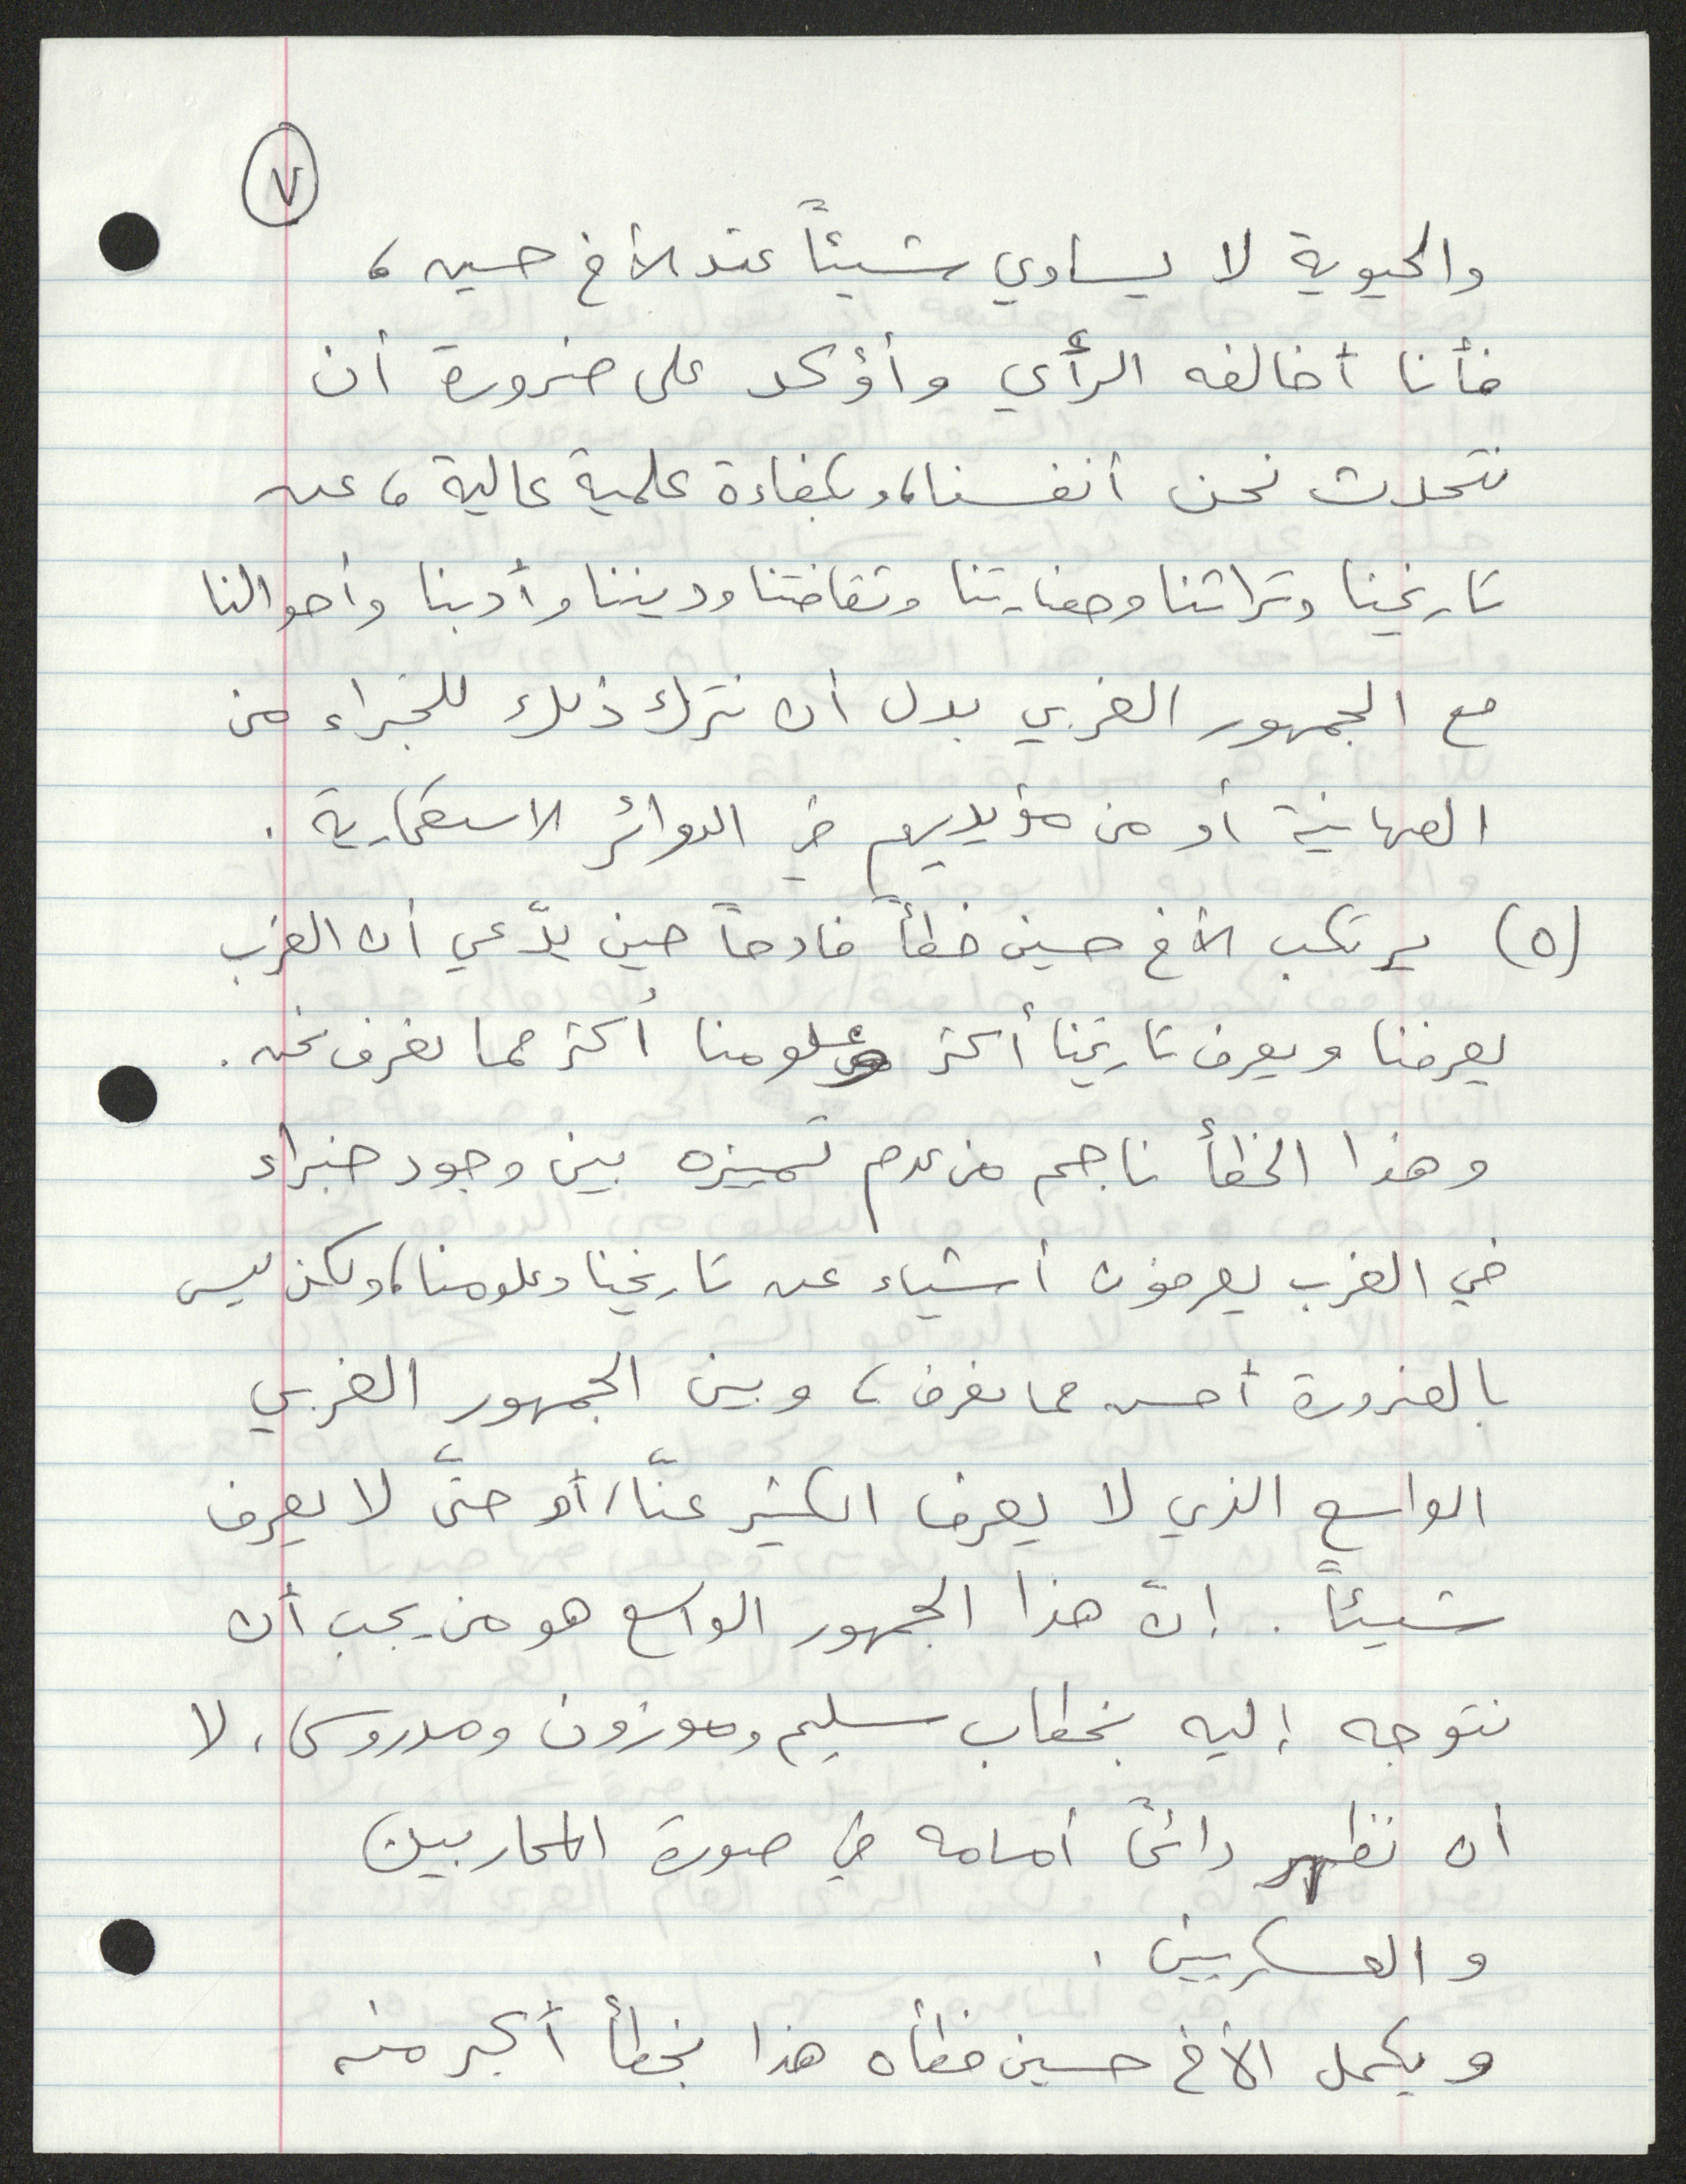 ٧
والحيوية لا يساوي شيئاً عند الأخ حسين ،
فأنا أخالفه الرأي وأؤكد على ضرورة أن
نتحدث نحن أنفسنا، وبكفاءة علمية عالية ، عن
تاريخنا وتراثنا وحضارتنا وثقافتنا وديننا وأدبنا وأحوالنا
مع الجمهور الغربي بدل أن نترك ذلك للخبراء من
الصهاينة أو من مؤيديهم في الدوائر الاستعمارية .
(٥) يرتكب الأخ حسين خطأً فادحاً حين يدّعي أن الغرب
يعرفنا ويعرف تاريخنا أكثر وعلومنا أكثر مما نعرف نحن .
وهذا الخطأ ناجم من عدم تمييزه بين وجود خبراء
في الغرب يعرفون أشياء عن تاريخنا وعلومنا، ولكن ليس
بالضرورة أحسن مما نعرف ، وبين الجمهور الغربي
الواسع الذي لا يعرف الكثير عنّا، أو حتّى لا يعرف
شيئاً . إنّ هذا الجمهور الواسع هو من يجب أن
نتوجه إليه بخطاب سليم وموزون ومدروس ، لا
أن نظهر دائماً أمامه في صورة المحاربين
والعسكريين .
ويكمل الأخ حسين خطأه هذا بخطأ أكبر منه